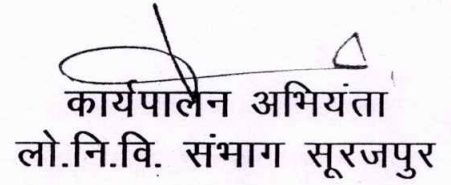 कार्यपालन अभियंता
लो.नि.वि. संभाग सूरजपुर